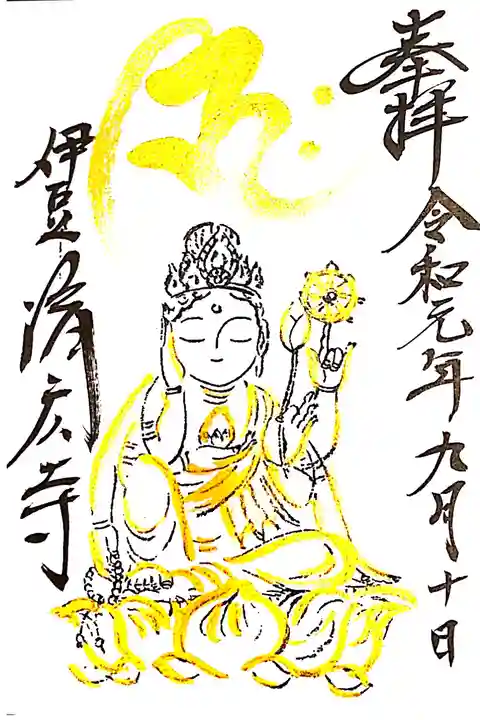 奉拝
令和元年九月十日
𑖮𑖿𑖨𑖱𑖾
伊豆
済広寺